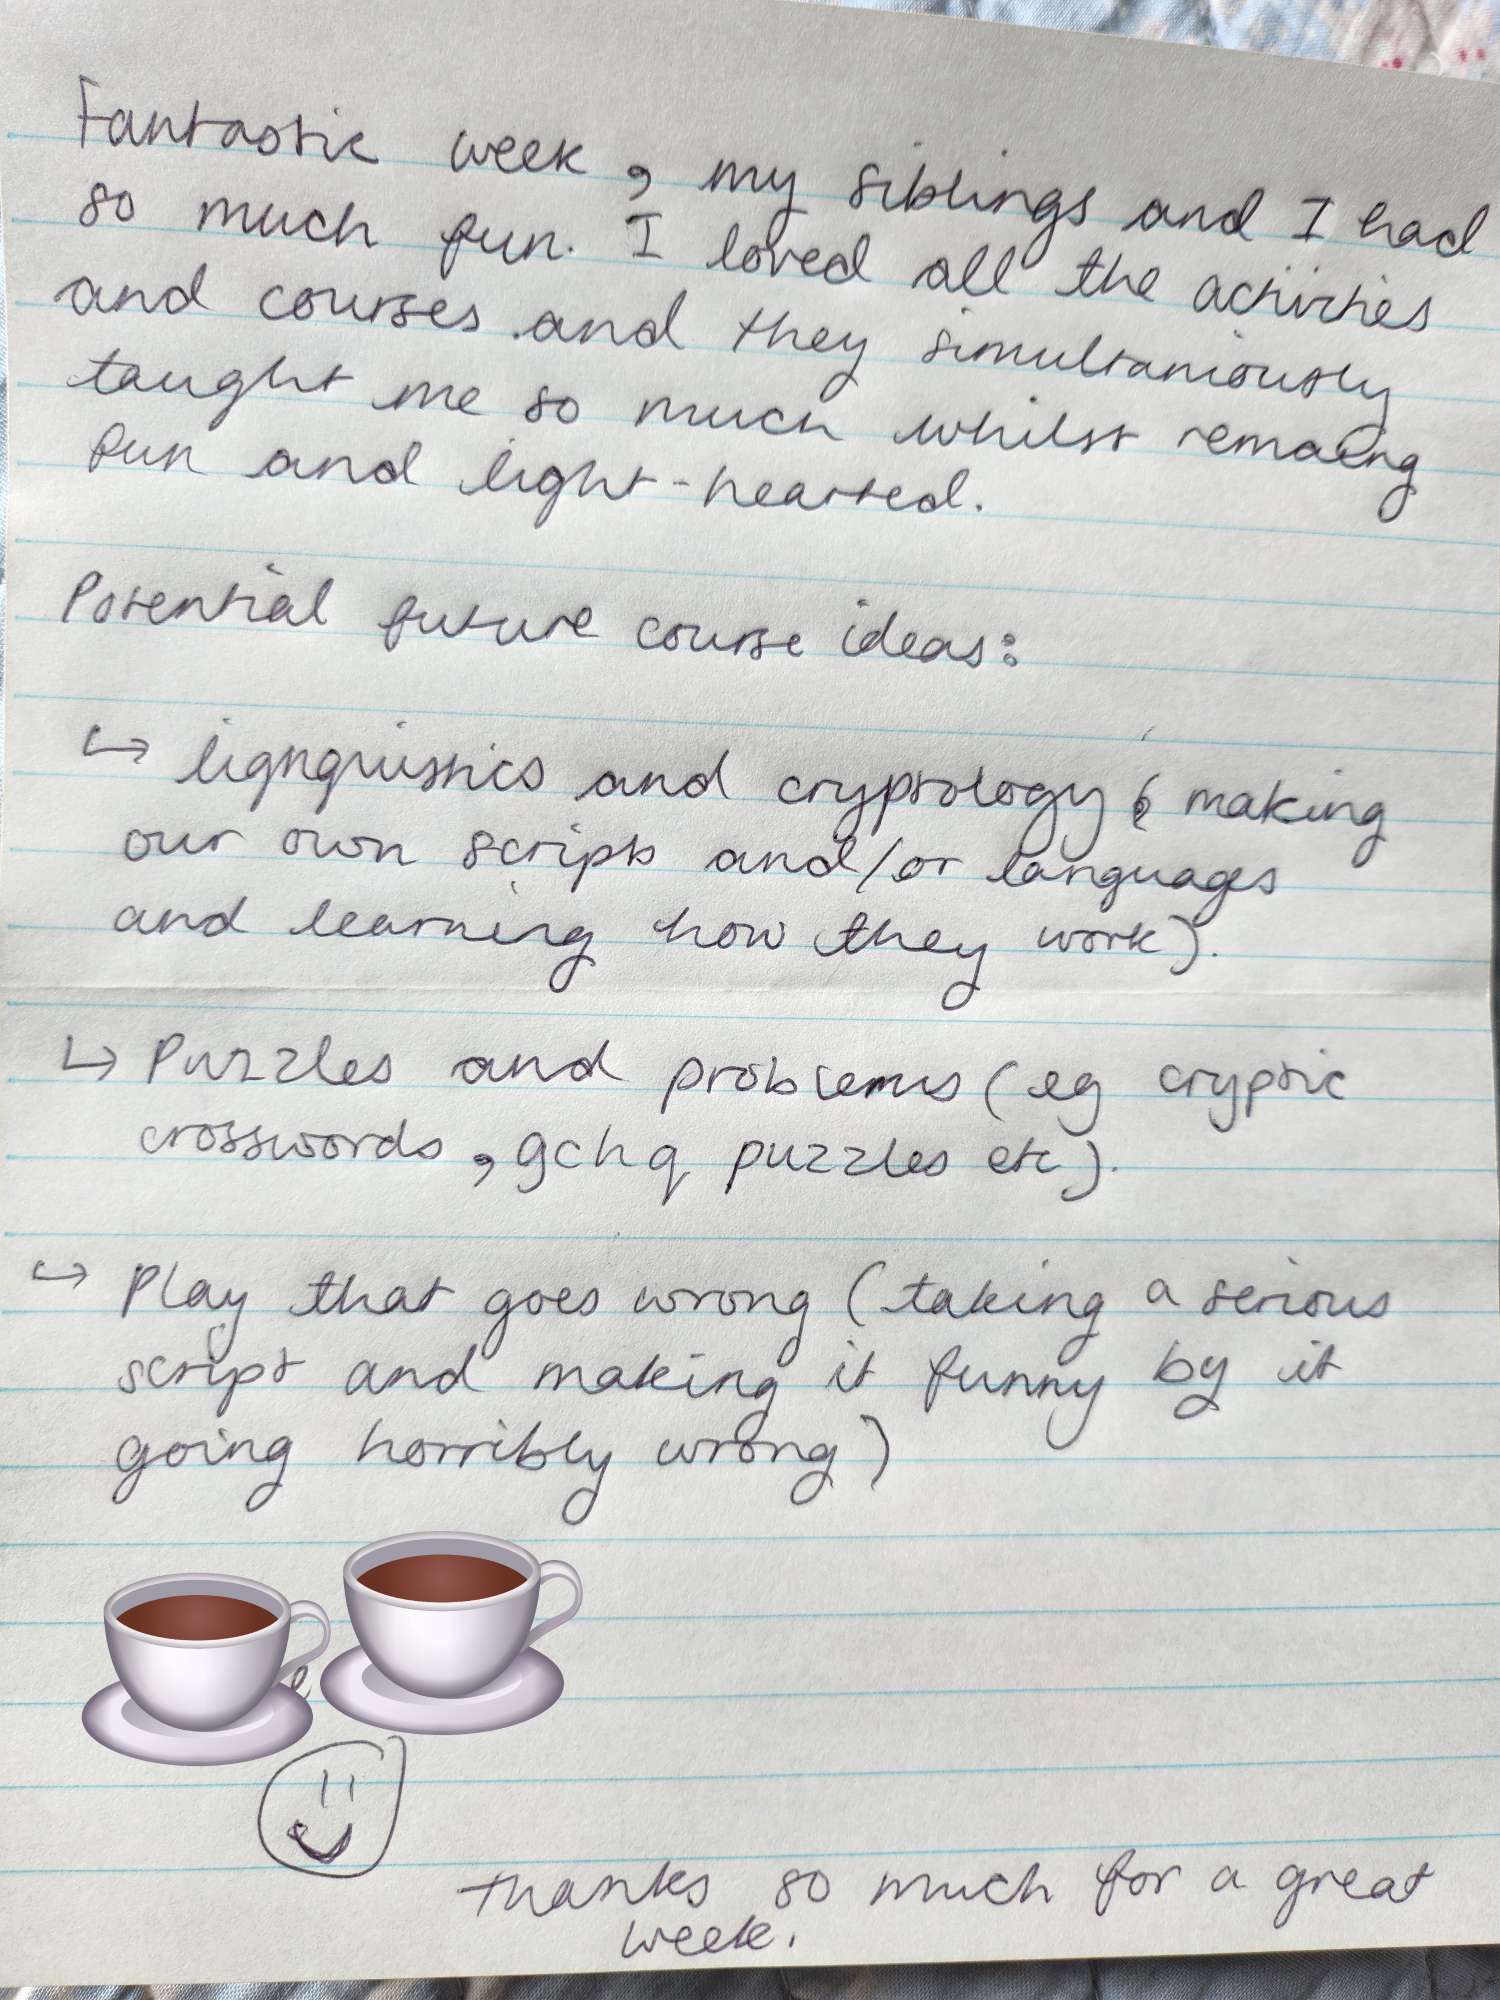 Fantastic week, my siblings and I had
so much fun. I loved all the activities
and courses and they simultaniously
taught me so much whilst remaing
fun and light-hearted.
Potential future course ideas:
↳ lignquistics and cryptology (making
our own scripts and/or languages
and learning how they work).
↳ Puzzles and problems (eg cryptic
crosswords, gchq puzzles etc).
↳ Play that goes wrong (taking a serious
script and making it funny by it
going horribly wrong)
thanks so much for a great
week.